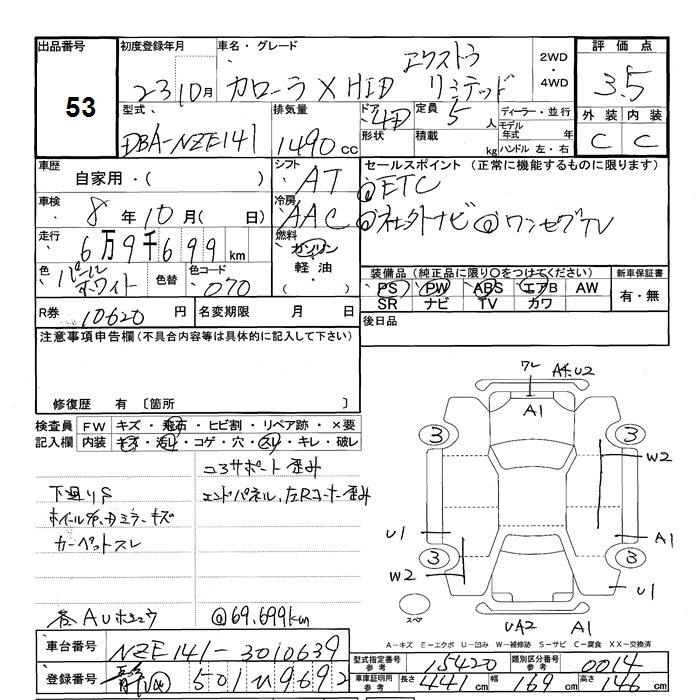 出品番号 53
初度登録年月 23 10月
車名・グレード カローラ X HID エクストラ リミテッド
2WD・4WD
評価点 3.5
外装 内装
C C
型式 DBA-NZE141
排気量 1490cc
ドア 4D
形状
定員 5人
積載 kg
ディーラー・並行
モデル年式 年
ハンドル 左・右
車歴 自家用・( )
シフト AT
セールスポイント (正常に機能するものに限ります)
@ETC
@社外ナビ @ワンセグTV
車検 8年10月( 日)
冷房 AAC
走行 6万9千699km
燃料 ガソリン・軽油・( )
色 パールホワイト
色替
色コード 070
装備品 (純正品に限り○をつけてください)
PS PW ABS エアB AW
SR ナビ TV カワ
新車保証書 有・無
R券 10620円
名変期限 月 日
後日品
注意事項申告欄 (不具合内容等は具体的に記入して下さい)
修復歴 有 〔箇所 〕
検査員記入欄
FW キズ・飛石・ヒビ割・リペア跡・×要
内装 キズ・汚レ・コゲ・穴・スレ・キレ・破レ
コアサポート歪み
下廻りS エンドパネル、左Rコーナー歪み
キズ
カーペットスレ
各AU @69.699km
A4.U2
A1
3 3
W2
U1 A1
3 3
W2 U1
スペア
UA2 A1
A-キズ E-エクボ U-凹み W-補修跡 S-サビ C-腐食 XX-交換済
車台番号 NZE141-3010639
登録番号 501 9692
型式指定番号 参考 15420
類別区分番号 参考 0014
車庫証明用 参考 長さ 441cm 幅 169cm 高さ 146cm